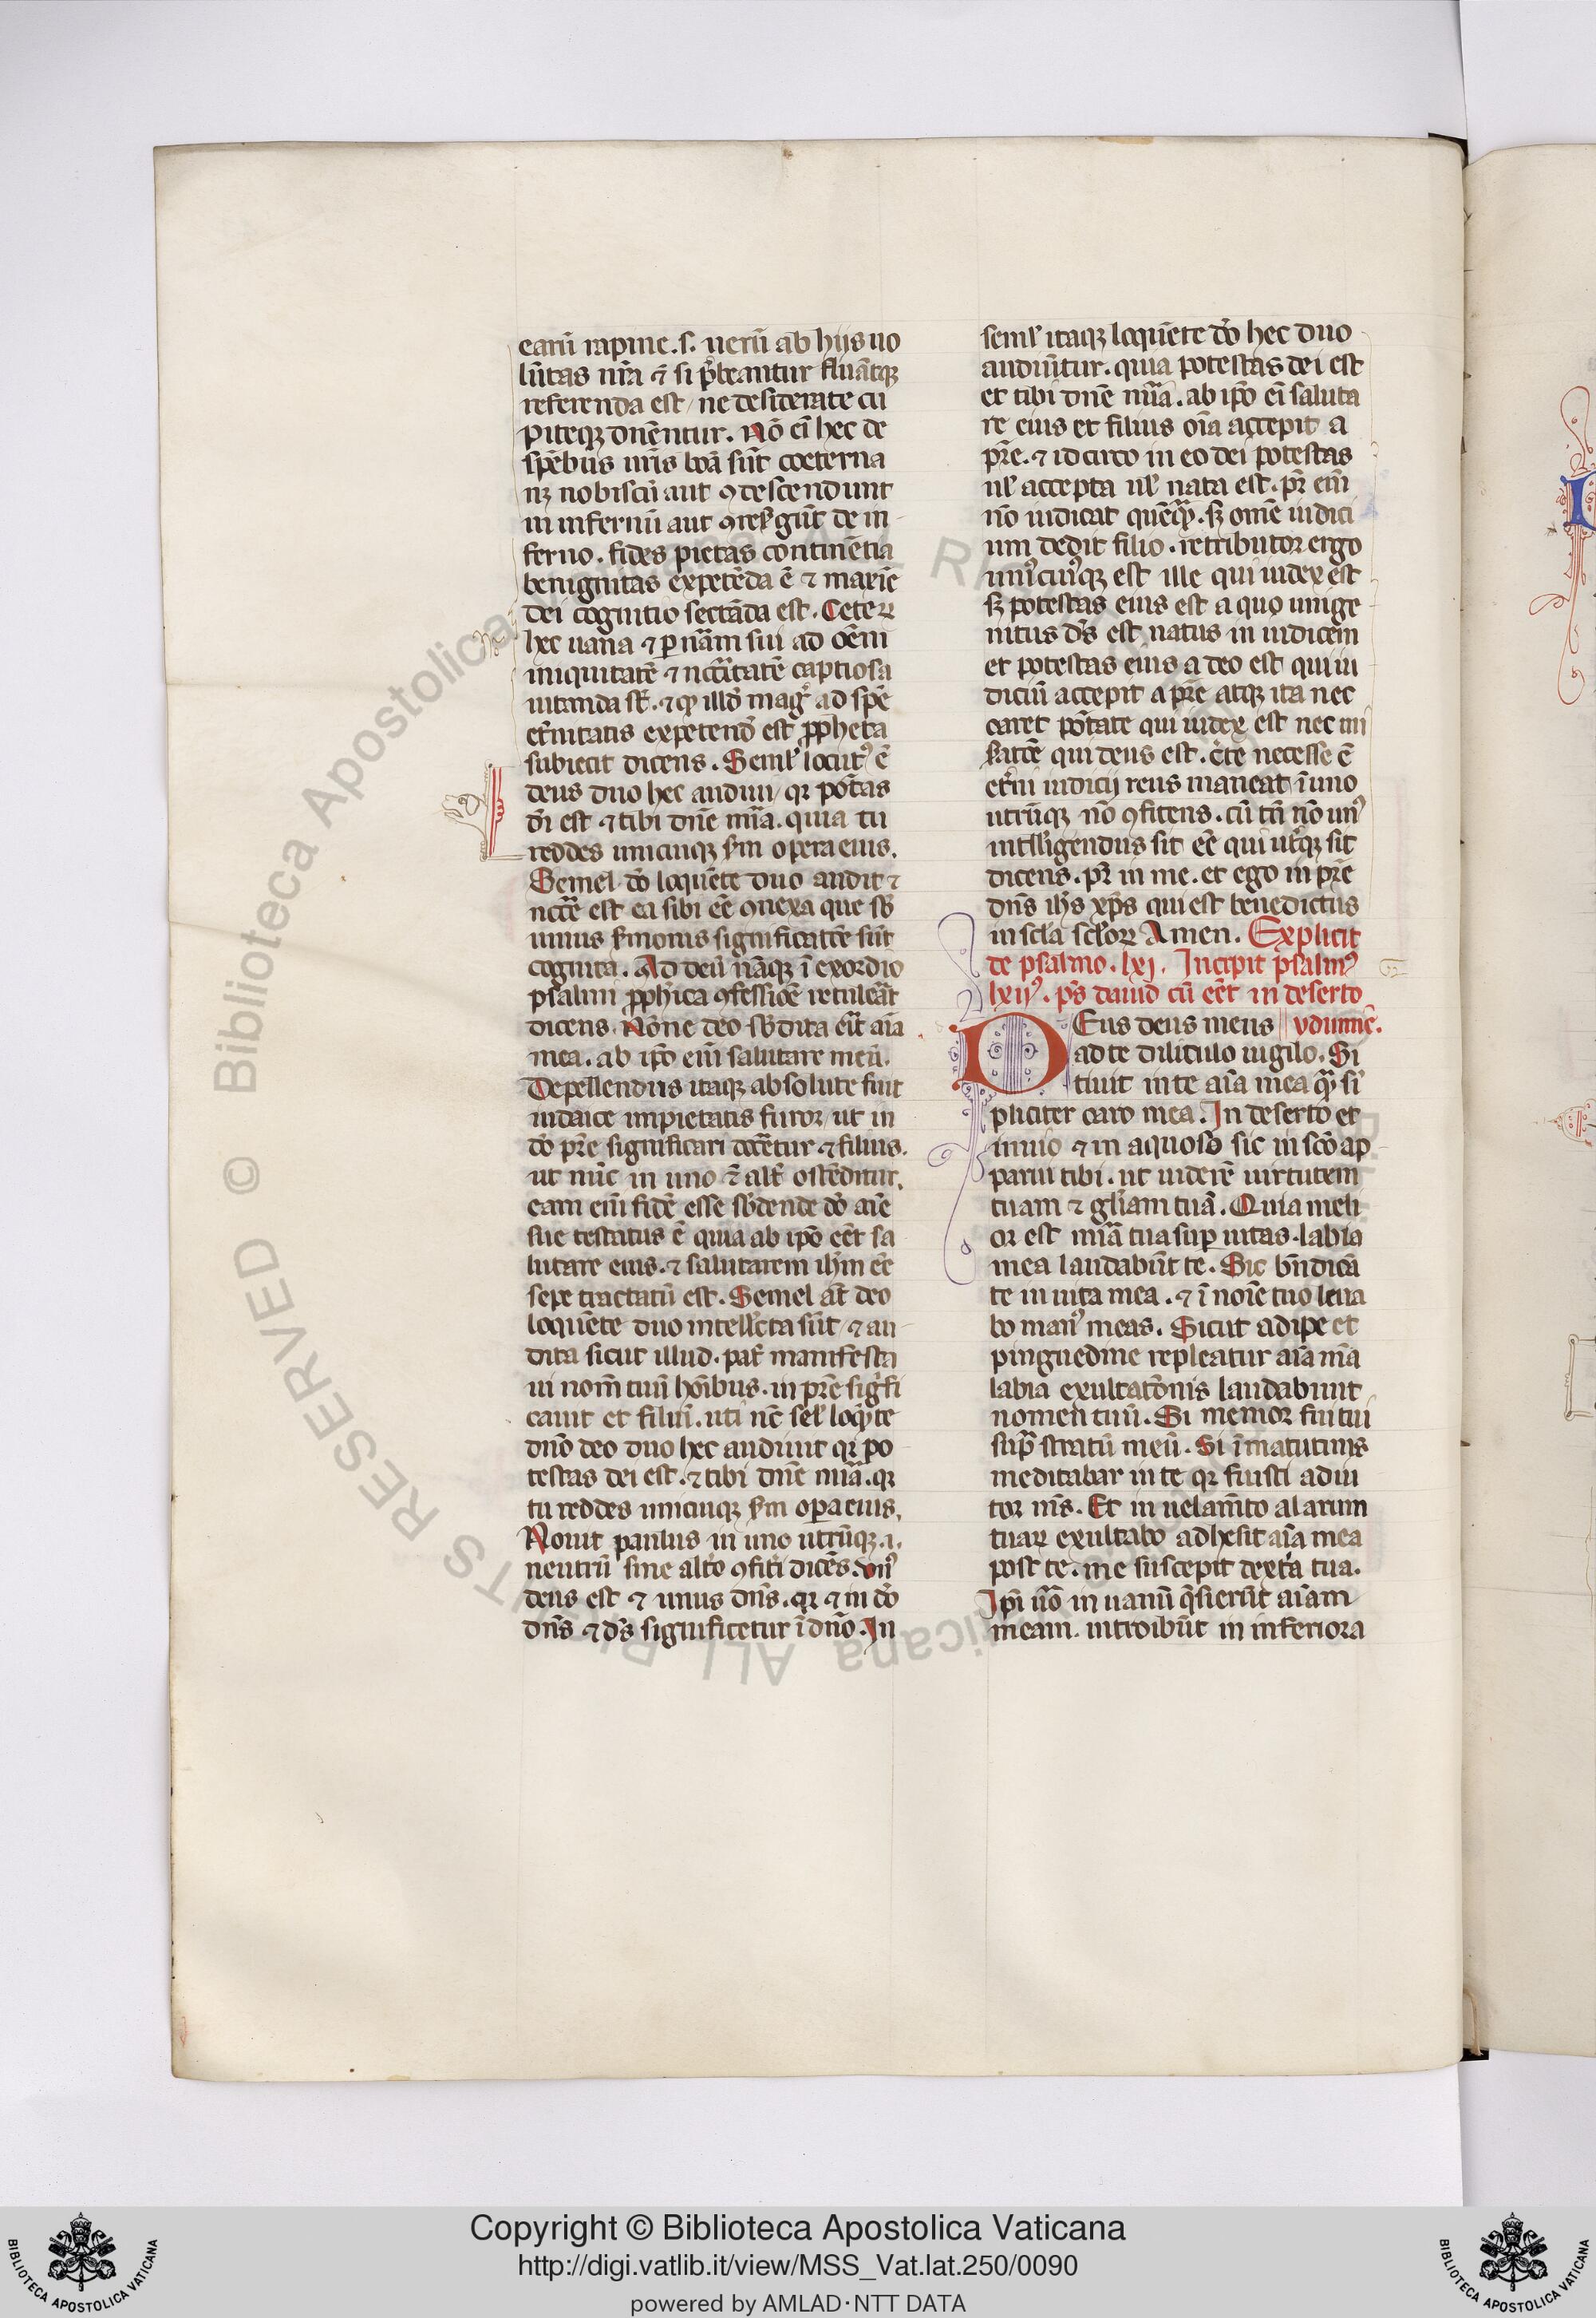 earũ rapine. s. uerũ ab hijs uo
lũtas nr̃a ⁊ si p̃beantur fluãtqꝫ
referenda est / ne desiderate cu
piteqꝫ dñentur. Nõ eĩ hec de
spẽbus nr̃is boã sũt coeterna
nꝫ nobiscũ aut ꝯdescendunt
in infernũ aut ꝯresᷣgũt de in
ferno. fides pietas continẽtia
benignitas expetẽda ẽ ⁊ maxĩe
dei cognitio sectãda est. Ceteꝝ
hec uana ⁊ ꝑ nãm sui ad oẽm
iniquitatẽ ⁊ nccĩtatẽ captiosa
uitanda st̃. ⁊ ꝙ illd̾ mag̾ ad spẽ
et̾nitatis expetend̾ est ꝓpheta
subiecit dicens. Semel̾ locutꝰ ẽ
deus duo hec audiui / qꝛ potãs
dĩ est ⁊ tibi dñe mĩa. quia tu
reddes unicuiqꝫ sᷣm opera eius.
Semel dõ loquẽte duo audit ⁊
nccẽ est ea sibi eẽ ꝯnexa que sb̾
unius sᷣmonis significatiõe sũt
cognita. Ad deũ nãqꝫ ĩ exordio
psalmi ꝓphĩca ꝯfessiõe retulẽat
dicens. Nõne deo sb̾dita erit aĩa
mea. ab ipõ eĩm salutare meũ.
Depellendus itaqꝫ absolute fuit
iudaice impietatis furor / ut in
dõ pr̃e significari docẽtur ⁊ filius.
ut nũc in uno ⁊ alt̾ ostẽditur.
eam eĩm fidẽ esse sb̾dende dõ aĩe
sue testatus ẽ quia ab ipõ eẽt sa
lutare eius. ⁊ salutarem ihm̃ eẽ
sepe tractatũ est. Semel at̃ deo
loquẽte duo intelłcta sũt / ⁊ au
dita sicut illud. pat̾ manifesta
ui nom̃ tuũ hoĩbus. in pr̃e sig̃fi
cauit et filiũ. uti nc̃ sel̾ loq̃nte
dño deo duo hec audiuit qꝛ po
testas dei est. ⁊ tibi dñe mĩa. qꝛ
tu reddes unicuiqꝫ sᷣm oꝑa eius.
Nouit paulus in uno utrũqꝫ. ⁊.
neutrũ sine alt̾o ꝯfiti dicẽs. Unꝰ
deus est ⁊ unus dñs. qꝛ ⁊ in dõ
dñs ⁊ ds̃ significetur ĩ dño. In
semel̾ itaqꝫ loquẽte dõ hec duo
audiũtur. quia potestas dei est
et tibi dñe mĩa. ab ipõ eĩ saluta
re eius et filius oĩa accepit a
pr̃e. ⁊ idcirco in eo dei potestas
uel̾ accepta uel̾ nata est. pr̃ eĩm
nõ iudicat quẽq̃. sꝫ omẽ iudici
um dedit filio. retributor ergo
unꝰcuiꝰqꝫ est ille qui iudex est
sꝫ potestas eius est a quo unige
nitus ds̃ est natus in iudicem
et potestas eius a deo est qui iu
diciũ accepit a pr̃e atqꝫ ita nec
caret pot̃ate qui iudex est nec mi
sᷣatiõe qui deus est. c̾te necesse ẽ
et̾ni iudicij reus maneat ĩ uno
utrũqꝫ nõ ꝯfitens. cũ tñ nõ unꝰ
intelłigendus sit eẽ qui ut̾qꝫ sit
dicens. pr̃ in me. et ego in pr̃e
dñs ihs̃ xp̃s qui est benedictus
in scl̃a scl̃oꝝ Amen. Explicit
de psalmo. lxj. Incipit psalmꝰ
lxijꝰ. ps̃ dauid cũ eẽt in deserto
DEus deus meus ydumee.
ad te diliculo uigilo. Si
tiuit in te aĩa mea q̃ si
pliciter caro mea. In deserto et
inuio ⁊ in aquoso sic in scõ ap
parui tibi. ut uiderẽ uirtutem
tuam ⁊ glĩam tuã. Quia meli
or est mĩa tua suꝑ uitas. labia
mea laudabũt te. Sic bñdicã
te in uita mea. ⁊ ĩ noĩe tuo leua
bo manꝰ meas. Sicut adipe et
pinguedine repleatur aĩa mea
labia exultatõnis laudabunt
nomen tuũ. Si memor fui tui
supᷓ stratũ meũ. Si ĩ matutinis
meditabar in te qꝛ fuisti adiu
tor m̃s. Et in uelamĩto alarum
tuaꝝ exultabo adhesit aĩa mea
post te. me suscepit dext̾a tua.
Ipĩ uõ in uanũ q̃sierũt aĩam
meam. introibũt in inferiora
© Biblioteca Apostolica Vaticana ALL RIGHTS RESERVED
Copyright © Biblioteca Apostolica Vaticana
http://digi.vatlib.it/view/MSS_Vat.lat.250/0090
powered by AMLAD·NTT DATA
BIBLIOTECA APOSTOLICA VATICANA
BIBLIOTECA APOSTOLICA VATICANA